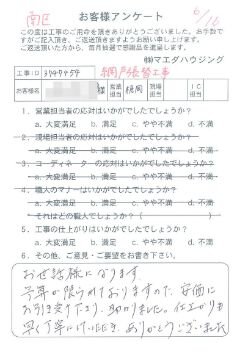 南区 お客様アンケート 6/16
この度は工事のご用命を頂きありがとうございました。お手数で
すがご記入頂き、ご返送頂きますようお願い申し上げます。
ご返送頂いた方から、毎月抽選で感謝品を進呈します。
㈱マエダハウジング
工事ID 網戸張替工事
お客様名 様 営業担当 現場担当 IC担当
1. 営業担当者の応対はいかがでしたでしょうか?
a. 大変満足 b. 満足 c. やや不満 d. 不満
2. 現場担当者の応対はいかがでしたでしょうか?
a. 大変満足 b. 満足 c. やや不満 d. 不満
3. コーディネーターの応対はいかがでしたでしょうか?
a. 大変満足 b. 満足 c. やや不満 d. 不満
4. 職人のマナーはいかがでしたでしょうか?
a. 大変満足 b. 満足 c. やや不満 d. 不満
それはどの職人でしょうか?
5. 工事の仕上がりはいかがでしたでしょうか?
a. 大変満足 b. 満足 c. やや不満 d. 不満
6. その他、ご意見・ご要望をお書き下さい。
お世話様になります。
予算が限られておりますので、安価に
お引き受け下さり、助かりました。仕上がりも
早く丁寧にいただき、ありがとうございました